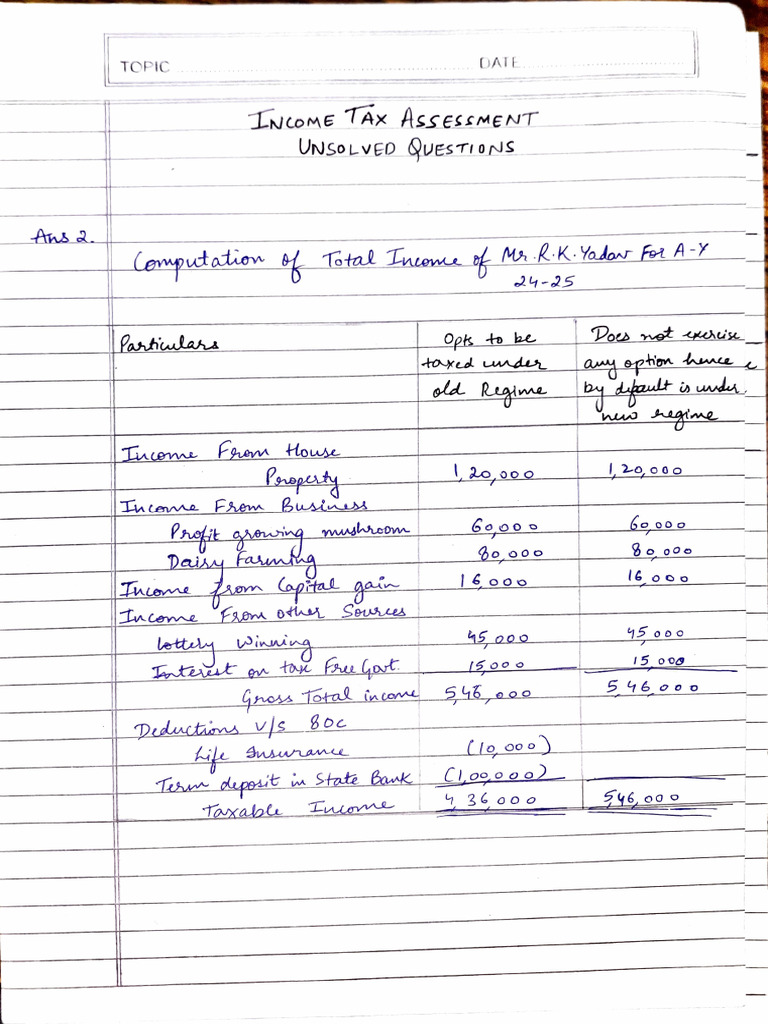 TOPIC DATE
INCOME TAX ASSESSMENT
UNSOLVED QUESTIONS
Ans 2.
Computation of Total Income of Mr. R. K. Yadav For A-Y
24-25
Particulars Opts to be Does not exercise
taxed under any option hence
old Regime by default is under
new regime
Income From House
Property 1,20,000 1,20,000
Income From Business
Profit growing mushroom 60,000 60,000
Dairy Farming 80,000 80,000
Income from Capital gain 16,000 16,000
Income From other Sources
Lottery Winning 45,000 45,000
Interest on tax Free Govt. 15,000 15,000
Gross Total income 5,46,000 5,46,000
Deductions V/S 80C
Life Insurance (10,000)
Term deposit in State Bank (1,00,000)
Taxable Income 4,36,000 5,46,000